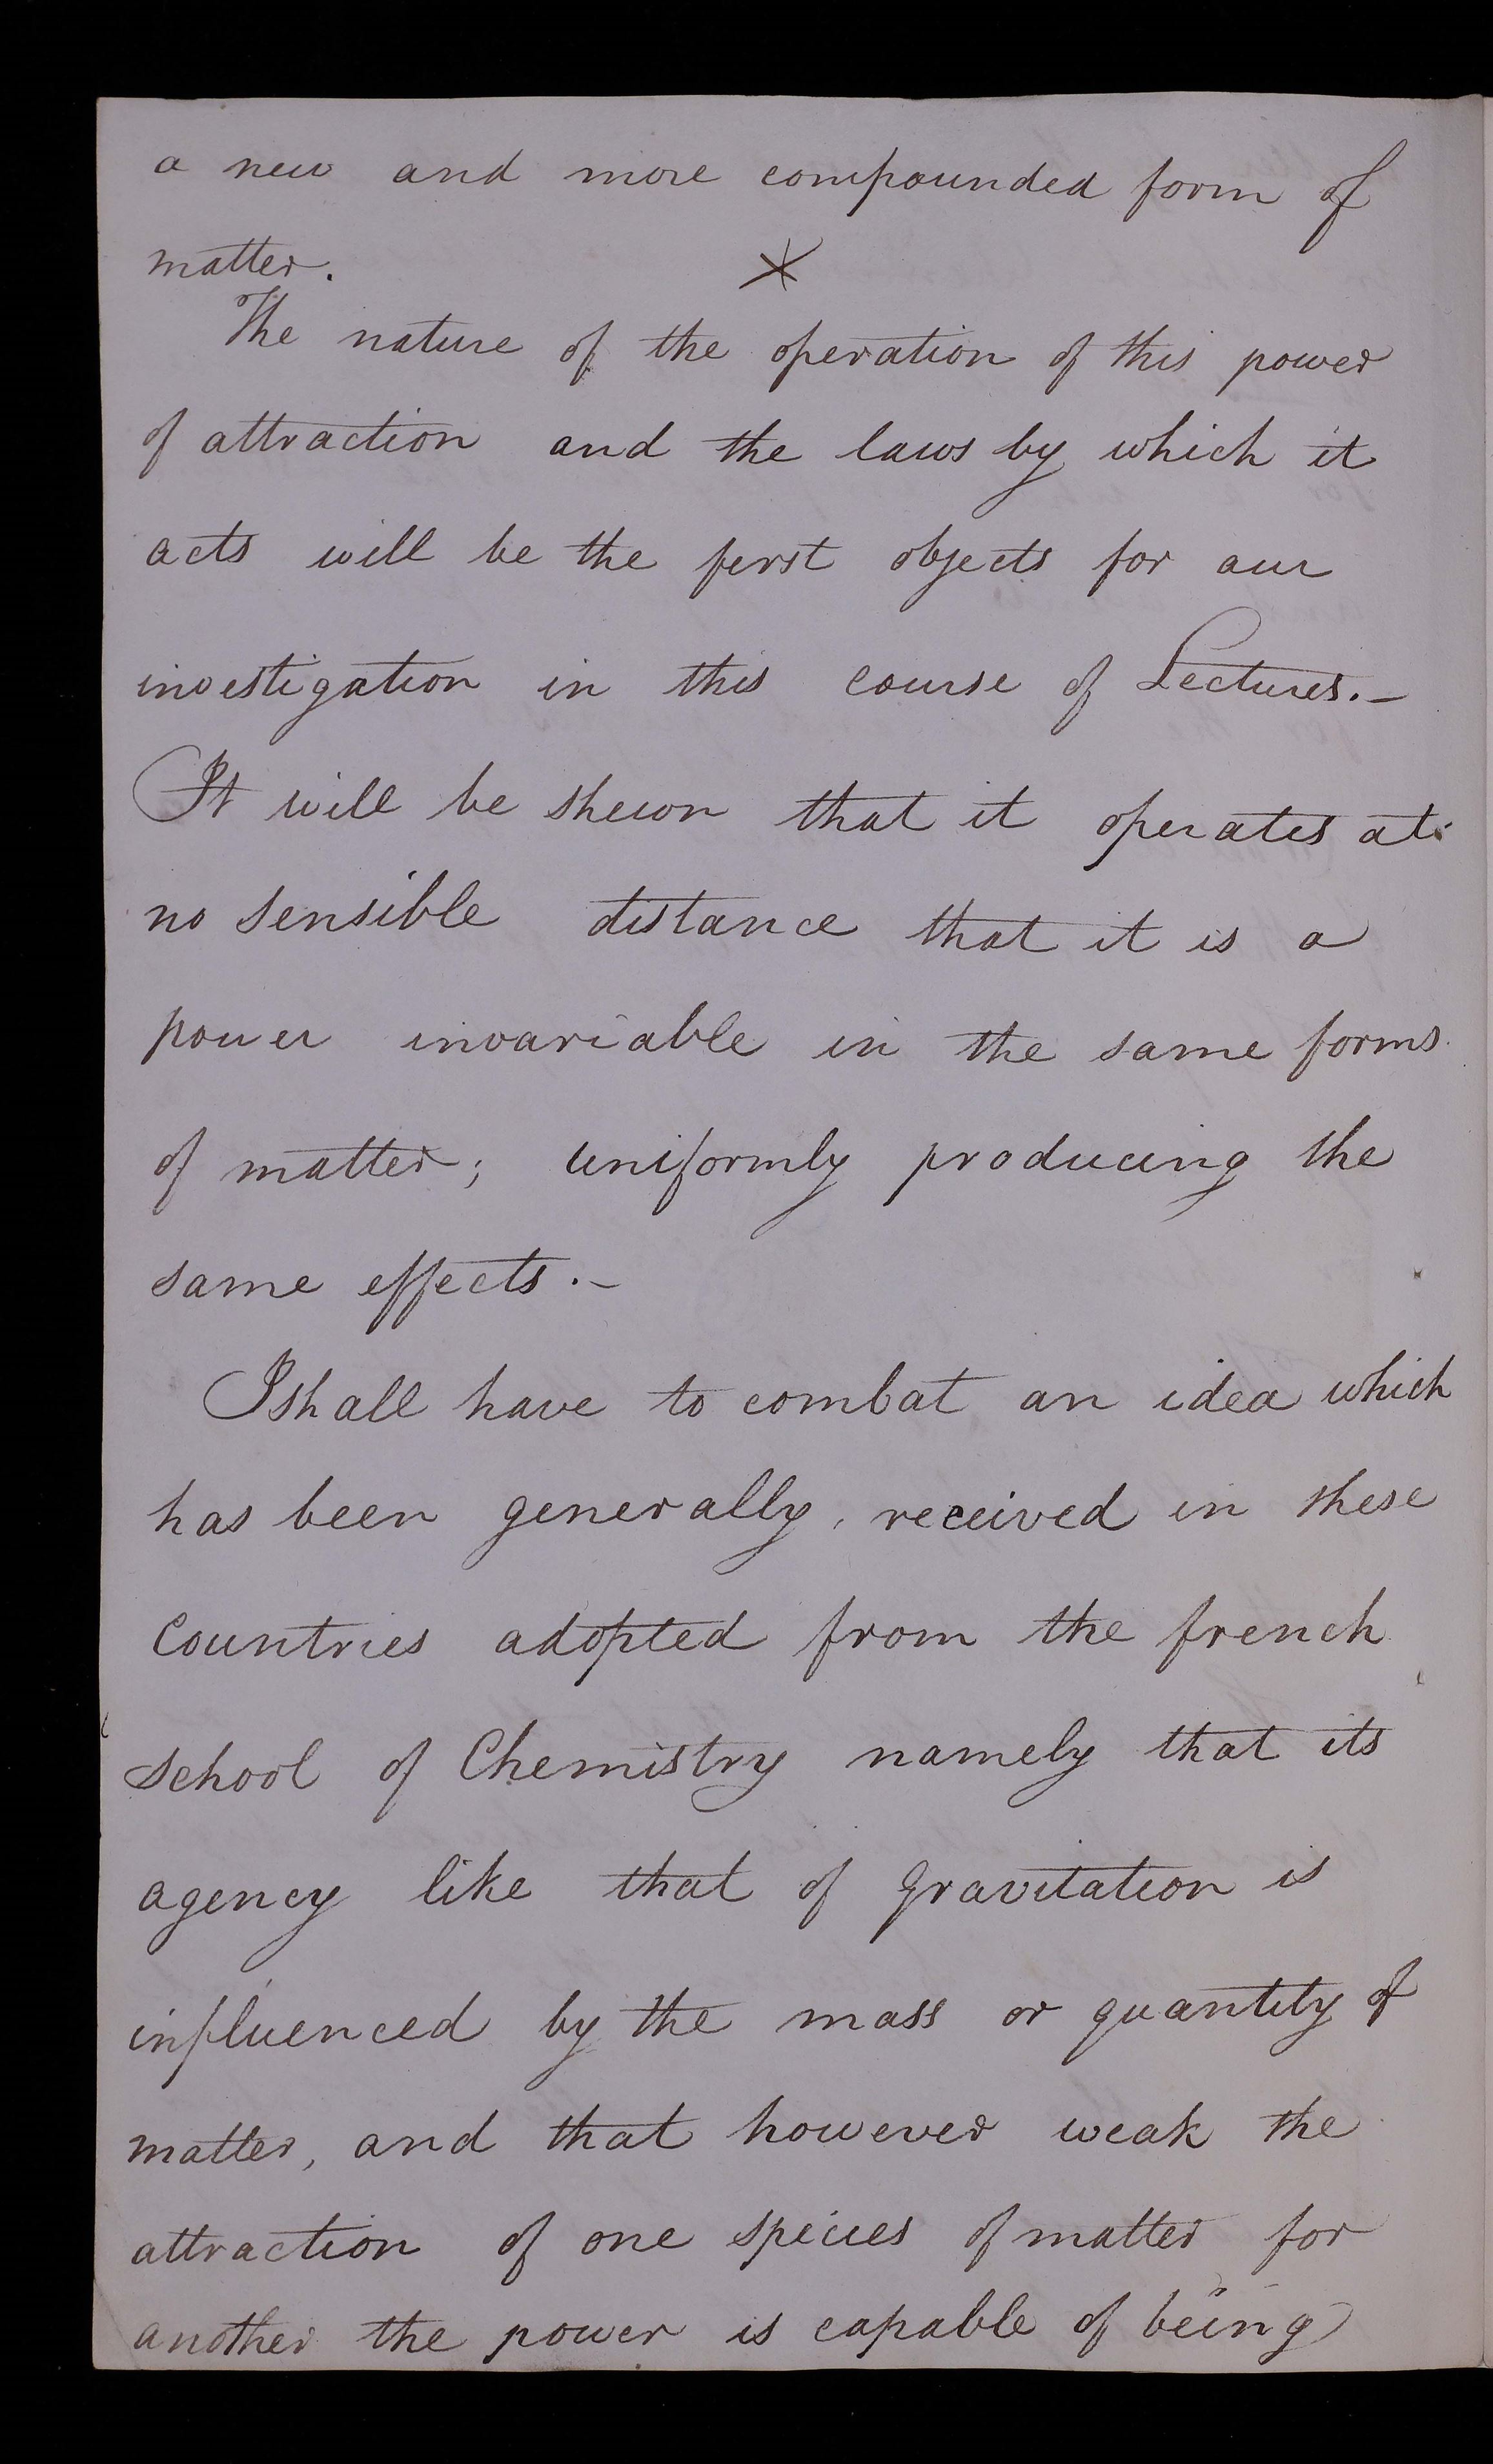 a new and more compounded form of
matter. ×
The nature of the operation of this power
of attraction and the laws by which it
acts will be the first objects for our
investigation in this course of Lectures.–
It will be shewn that it operates at
no sensible distance that it is a
power invariable in the same forms
of matter; uniformly producing the
same effects.–
I shall have to combat an idea which
has been generally, received in these
Countries adopted from the french
school of Chemistry namely that its
agency like that of gravitation is
influenced by the mass or quantity of
matter, and that however weak the
attraction of one species of matter for
another the power is capable of being